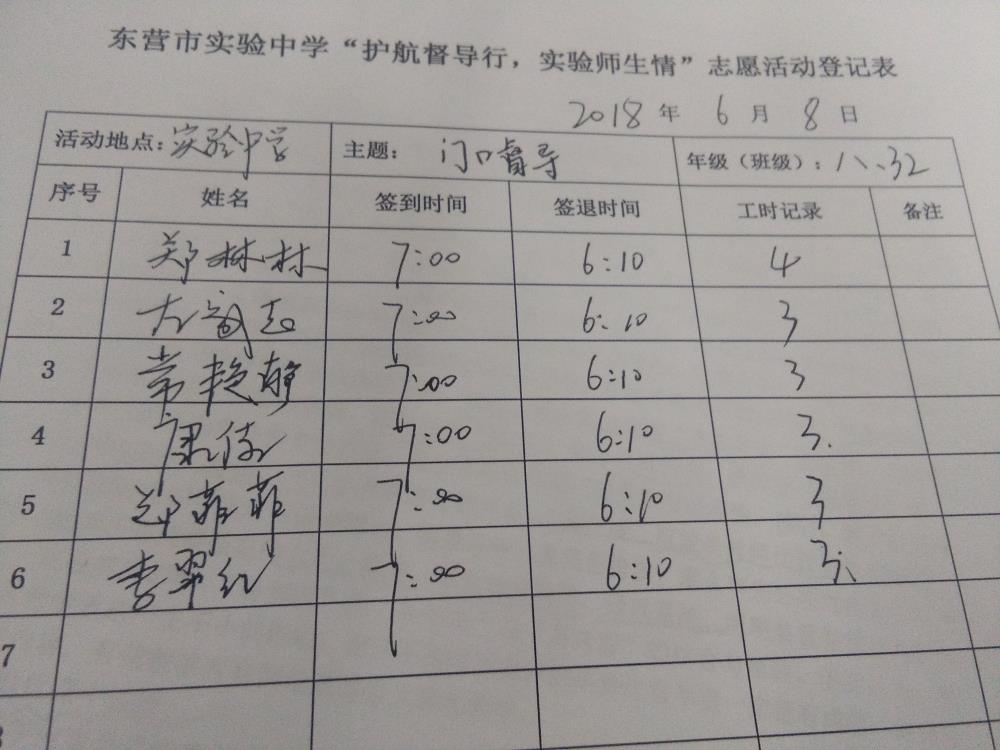 东营市实验中学“护航督导行，实验师生情”志愿活动登记表
2018年 6月 8日
活动地点：实验中学 主题： 门口督导 年级（班级）：八、32
序号 姓名 签到时间 签退时间 工时记录 备注
1 郑林林 7:00 6:10 4
2 左 志 7:00 6:10 3
3 常艳 7:00 6:10 3
4 康 7:00 6:10 3.
5 郑菲菲 7:00 6:10 3
6 李翠红 7:00 6:10 3.
7